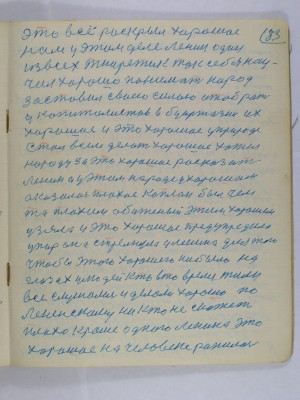 183
это всё раскрыл хорошае
нам у этом деле Ленин один
из всех тиаретик так себя нау-
чил хорошо понимат народ
заставил своею силою отобрат
у капиталистов в буржазии их
хорошае и это хорошае у природе
стал всем делат хорошае хотел
народу за это хорошае рассказат
Ленин а у этим народе у хорошем
оказалос плохое Каплан был чем
та плохим обиженый этим хорошем
узяла и это хорошае предупредила
упор она стрелила у Ленина для того
чтобы этого хорошего небыло на
глазах людей кто в то время тому
все слушали и делали хорошо по
Ленинскому никто не скажет
плохо кроме одного Ленина это
хорошае на человеке